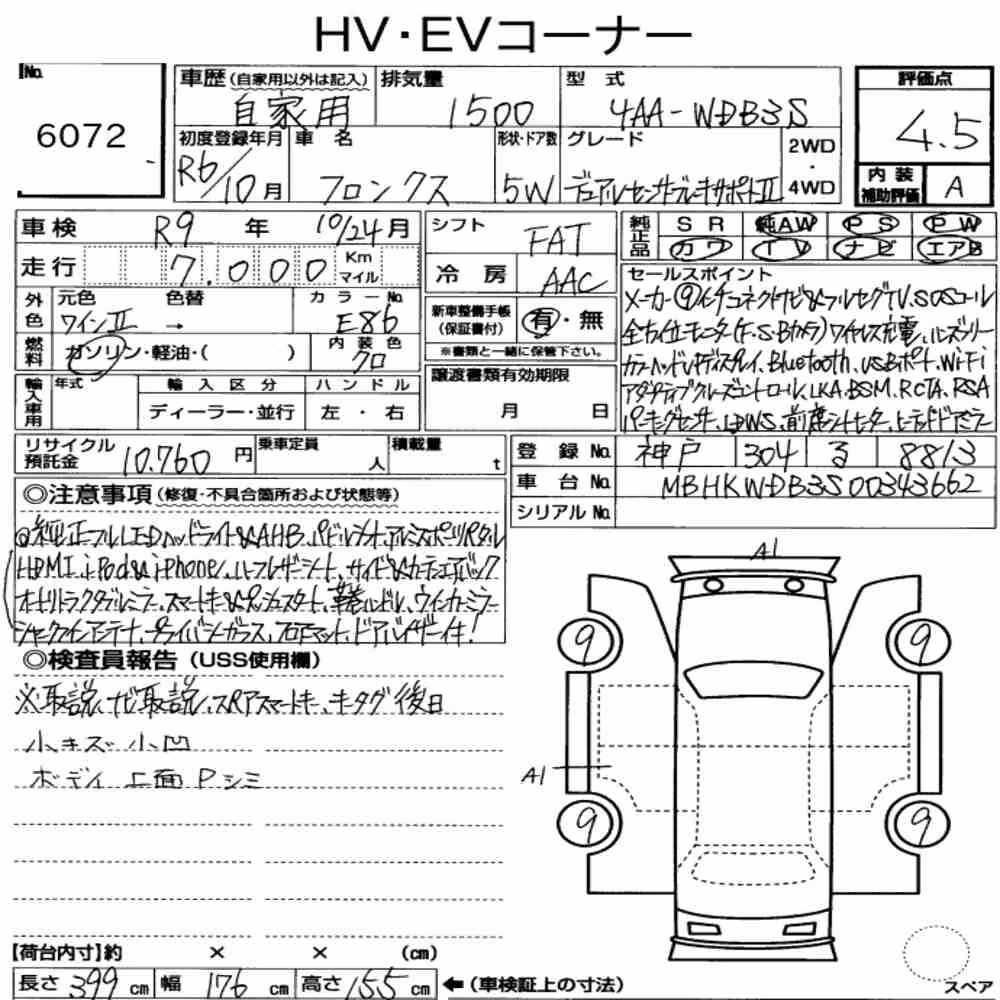 HV・EVコーナー
No.
6072
車歴(自家用以外は記入)
自家用
排気量
1500
型 式
4AA-WDB3S
評価点
4.5
初度登録年月
R6/10月
車 名
フロンクス
形状・ドア数
5W
グレード
デュアルセンサーブレーキサポートⅡ
2WD
・
4WD
内 装
補助評価
A
車検 R9 年 10/24月
走行 7,000 Km マイル
外色
元色 色替
ワインⅡ →
カラーNo.
E86
燃料
ガソリン・軽油・( )
内装色
クロ
輸入車用
年式
輸入区分
ディーラー・並行
ハンドル
左・右
シフト
FAT
冷 房
AAC
新車整備手帳
(保証書付)
有・無
※書類と一緒に保管下さい。
譲渡書類有効期限
月 日
純正品
SR 純AW PS PW
カワ TV ナビ エアB
セールスポイント
メーカー⑨インチコネクトナビ&フルセグTV、SOSコール
全方位モニター(F・S・Bカメラ)ワイヤレス充電、
カラーヘッドUPディスプレイ、Bluetooth、USBポート、WiFi
アダプティブクルーズコントロール、LKA、BSM、RCTA、RSA
パーキングセンサー、LDWS、前席シートヒーター、
リサイクル
預託金
10.760 円
乗車定員
人
積載量
t
登録No. 神戸 304 る 8813
車台No. MBHKWDB3S00343662
シリアルNo.
◎注意事項(修復・不具合箇所および状態等)
◎純正フルLEDヘッドライト&AHB、パドルシフト、アルミスポーツペダル
HDMI、iPod&iPhone、ハーフレザーシート、サイド&カーテンエアバック
オートリトラクタブルミラー、スマートキー&プッシュスタート、革巻ハンドル、ウインカーミラー
シャークフィンアンテナ、プライバシーガラス、フロアマット、ドアバイザー付!
◎検査員報告(USS使用欄)
※取説、ナビ取説、スペアスマートキー、キータグ後日
小キズ小凹
ボディ上面Pシミ
A1
9
9
A1
9
9
【荷台内寸】約 × × (cm)
長さ 399 cm 幅 176 cm 高さ 155 cm
←(車検証上の寸法)
スペア